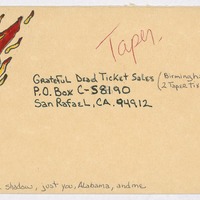 Taper
Grateful Dead Ticket Sales
P.O. Box C-S8190
San Rafael, CA. 94912
(Birmingha
2 Taper Ti
shadow, just you, Alabama, and me